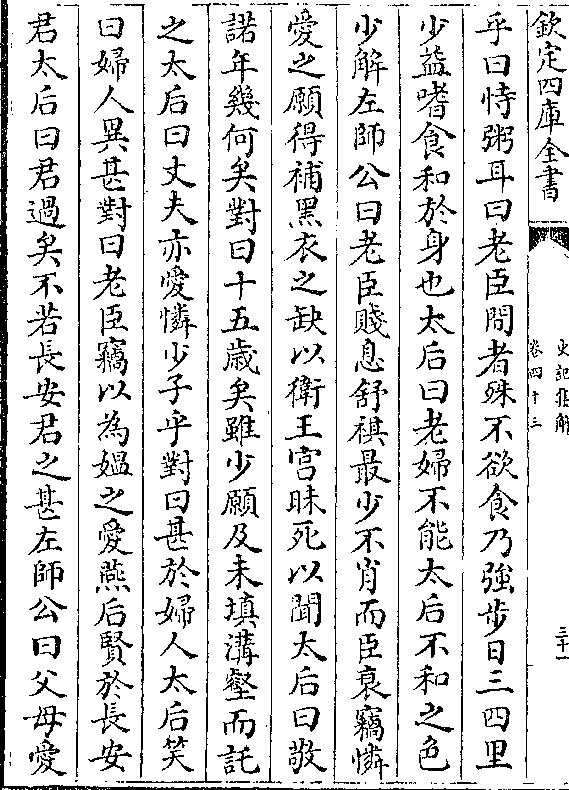 欽定四庫全書
史記集解
卷四十三
三十一
乎曰恃粥耳曰老臣間者殊不欲食乃強歩日三四里
少益嗜食和於身也太后曰老婦不能太后不和之色
少解左師公曰老臣賤息舒祺最少不肖而臣衰竊憐
愛之願得補黑衣之缺以衛王宫昧死以聞太后曰敬
諾年幾何矣對曰十五歳矣雖少願及未填溝壑而託
之太后曰丈夫亦愛憐少子乎對曰甚於婦人太后笑
曰婦人異甚對曰老臣竊以為媪之愛燕后賢於長安
君太后曰君過矣不若長安君之甚左師公曰父母愛